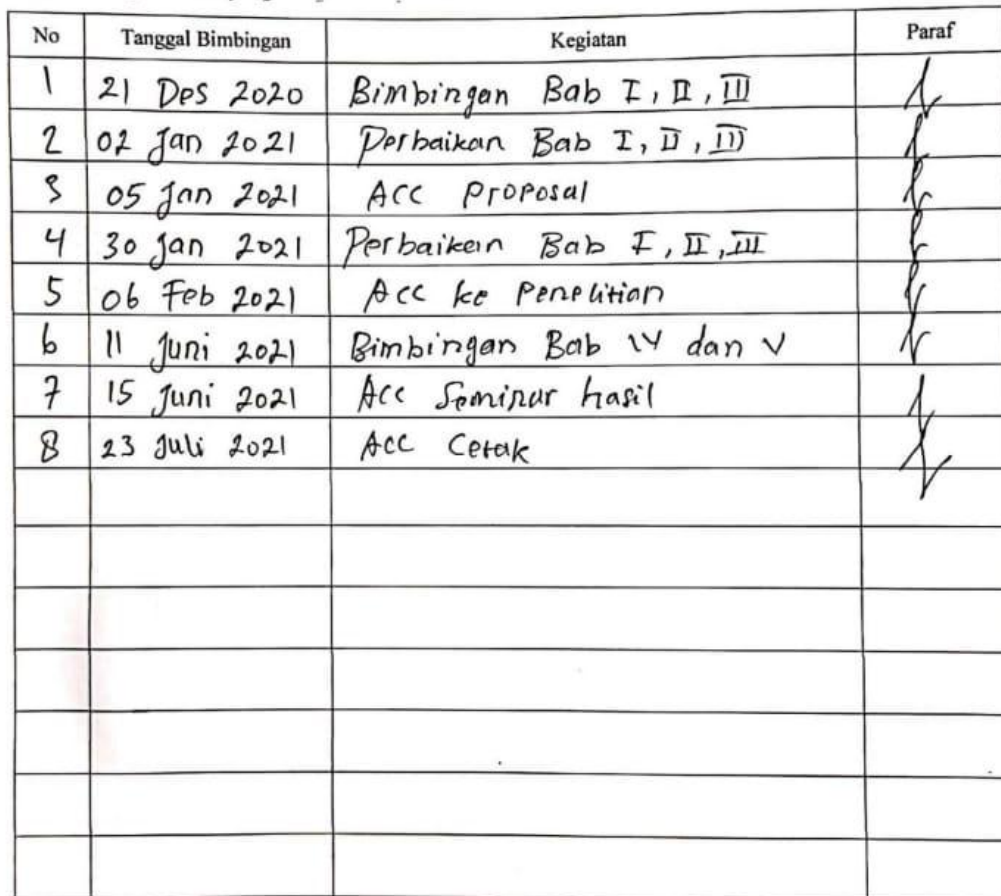 No Tanggal Bimbingan Kegiatan Paraf
1 21 Des 2020 Bimbingan Bab I, II, III
2 02 Jan 2021 Perbaikan Bab I, II, III
3 05 Jan 2021 Acc Proposal
4 30 Jan 2021 Perbaikan Bab I, II, III
5 06 Feb 2021 Acc ke Penelitian
6 11 Juni 2021 Bimbingan Bab IV dan V
7 15 Juni 2021 Acc Seminar hasil
8 23 Juli 2021 Acc Cetak